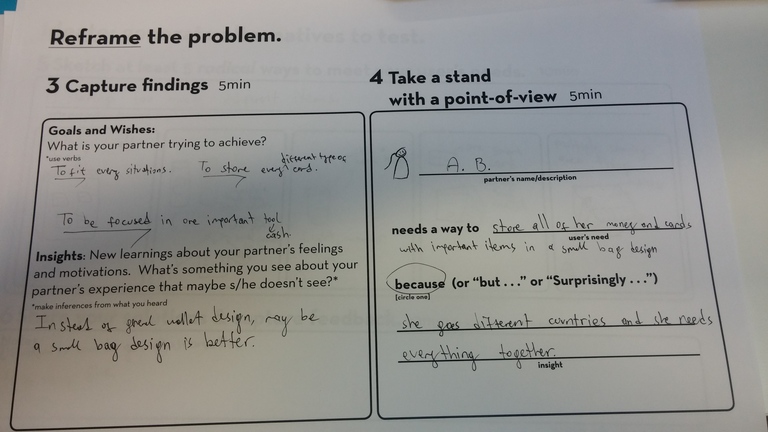 Reframe the problem.
3 Capture findings 5min
Goals and Wishes:
What is your partner trying to achieve?
*use verbs
To fit every situations. To store every different type of card.
To be focused in one important tool
cash.
Insights: New learnings about your partner's feelings
and motivations. What's something you see about your
partner's experience that maybe s/he doesn't see?*
*make inferences from what you heard
Instead of great wallet design, may be
a small bag design is better.
4 Take a stand
with a point-of-view 5min
A. B.
partner's name/description
needs a way to store all of her money and cards
user's need
with important items in a small bag design
because (or "but..." or "Surprisingly...")
[circle one]
she goes different countries and she needs
everything together.
insight